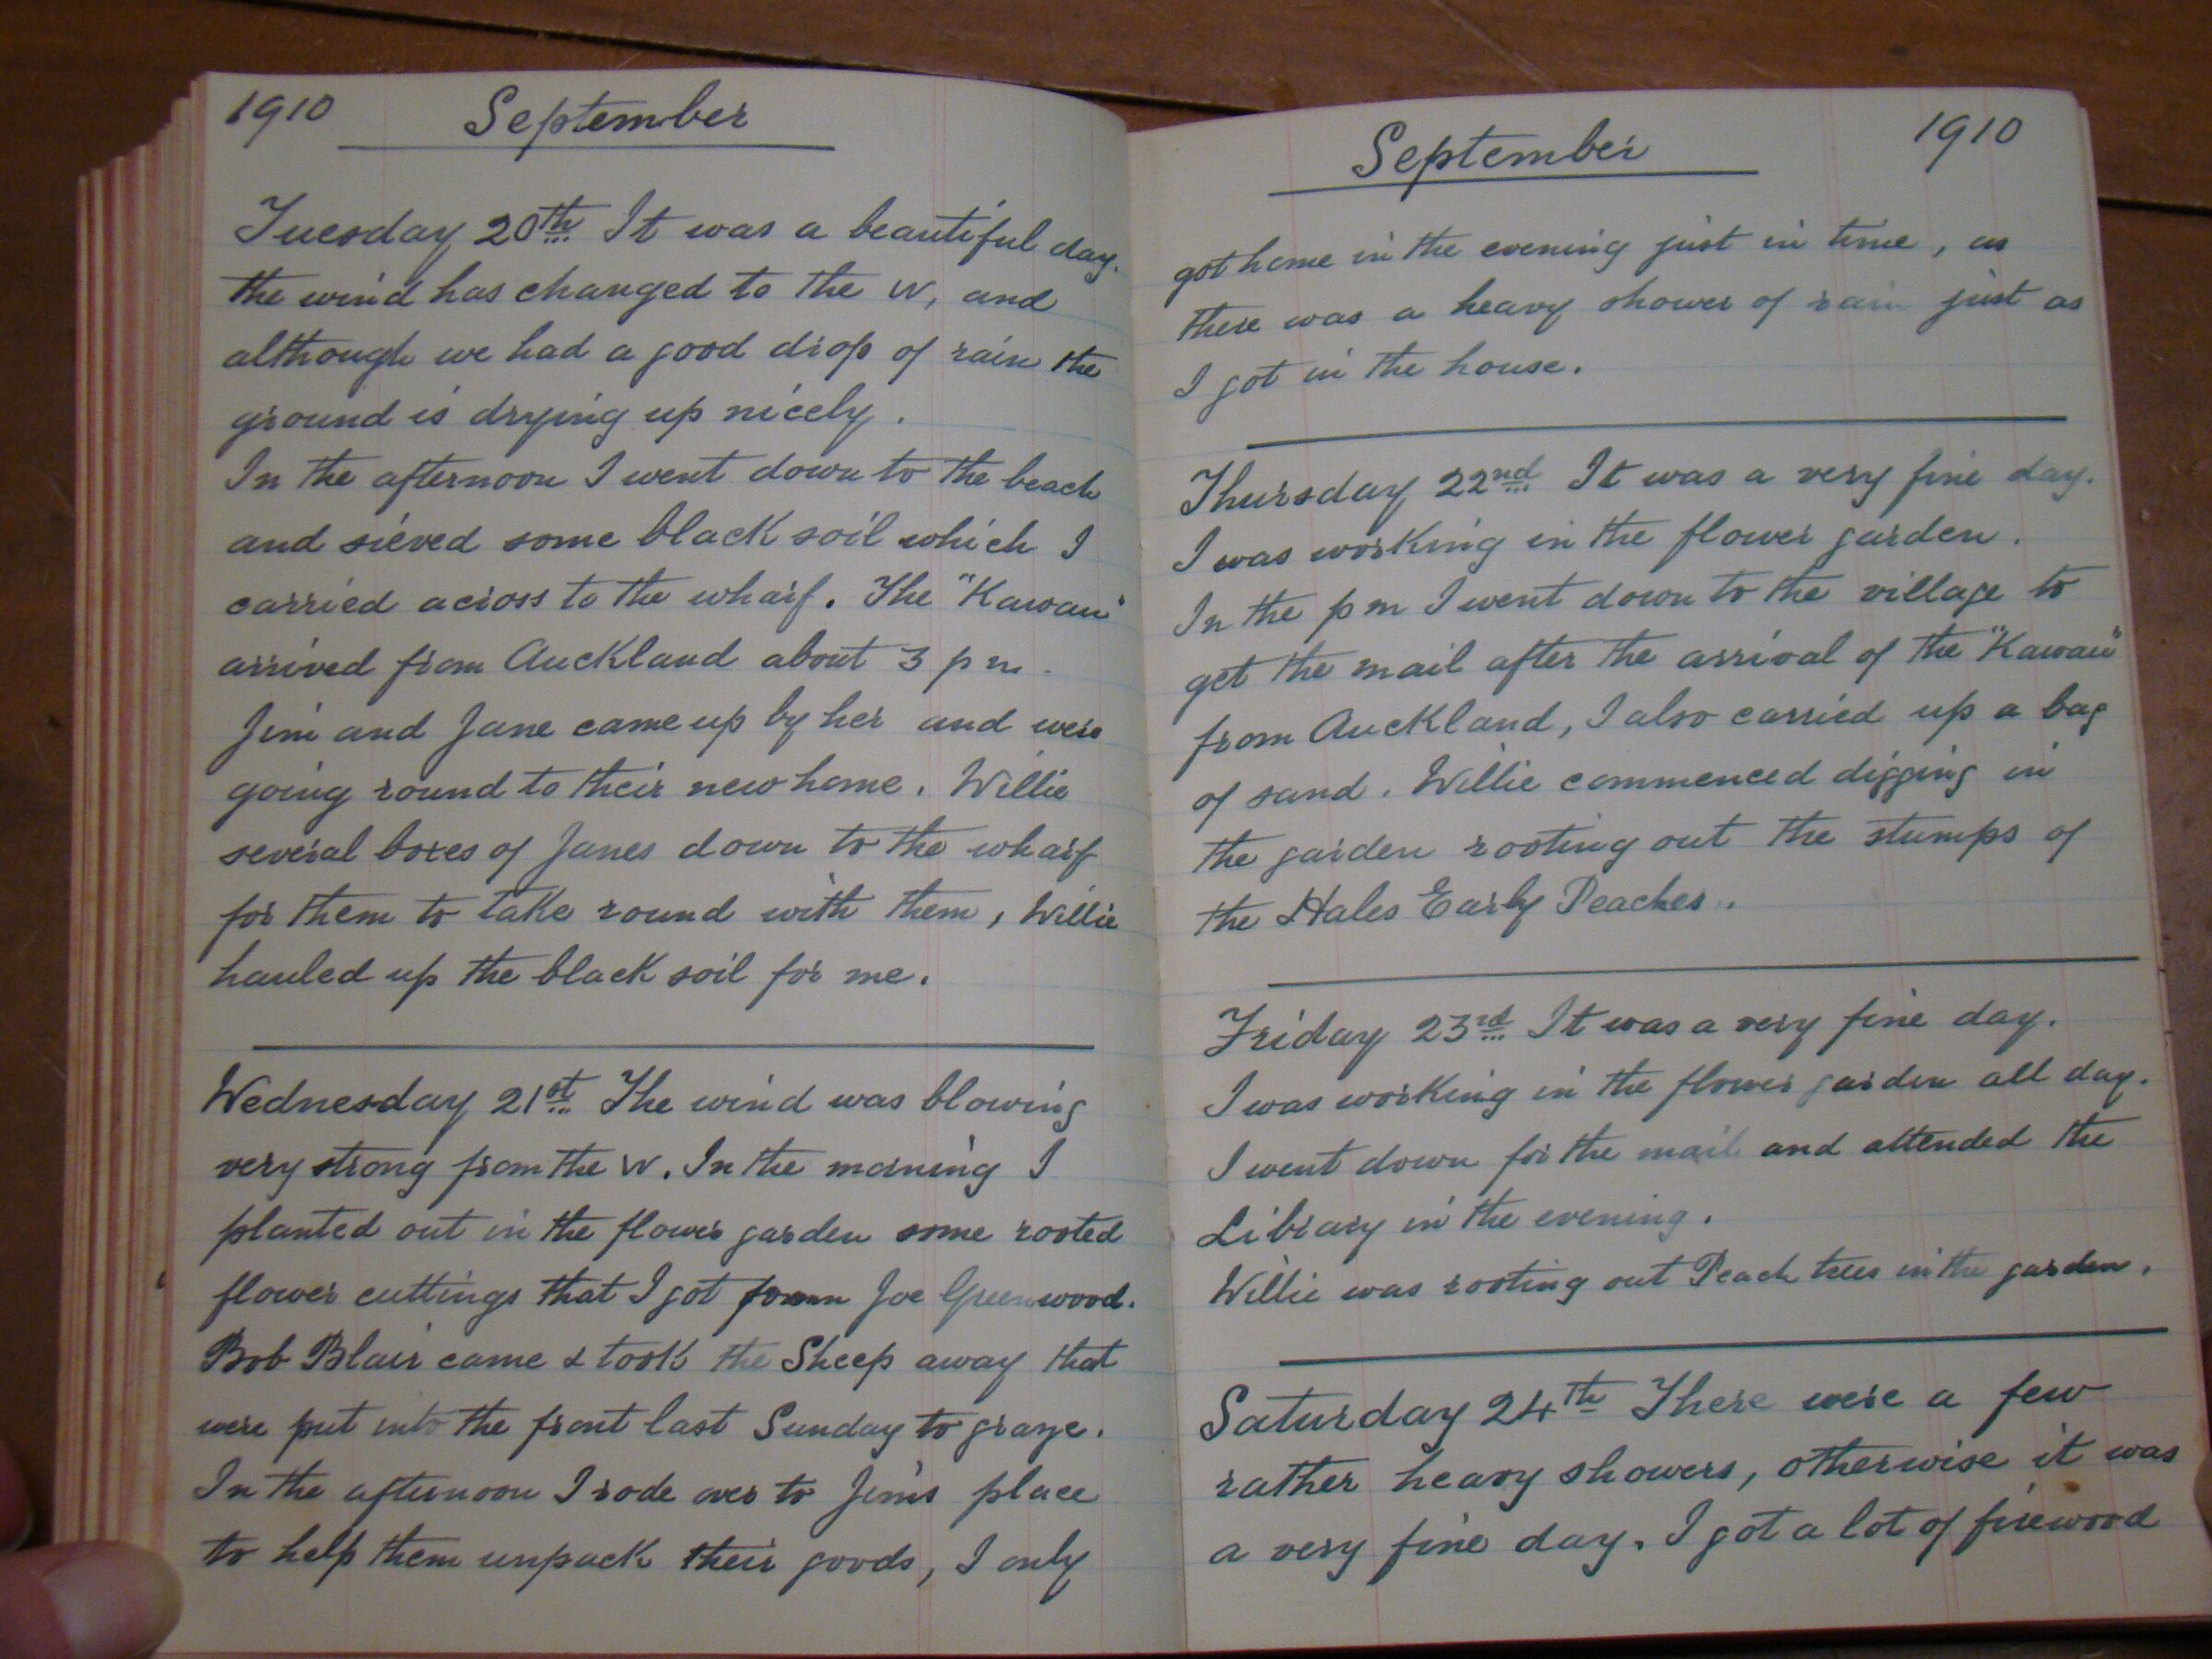 1910 September
Tuesday 20th It was a beautiful day.
the wind has changed to the W, and
although we had a good drop of rain the
ground is drying up nicely.
In the afternoon I went down to the beach
and sieved some black soil which I
carried across to the wharf. The "Kawau"
arrived from Auckland about 3 pm.
Jim and Jane came up by her and were
going round to their new home. Willie
several boxes of Janes down to the wharf
for them to take round with them, Willie
hauled up the black soil for me.
Wednesday 21st The wind was blowing
very strong from the W. In the morning I
planted out in the flower garden some rooted
flower cuttings that I got from Joe Greenwood.
Bob Blair came & took the Sheep away that
were put into the front last Sunday to graze.
In the afternoon I rode over to Jim's place
to help them unpack their goods, I only
September 1910
got home in the evening just in time, as
there was a heavy shower of rain just as
I got in the house.
Thursday 22nd It was a very fine day.
I was working in the flower garden.
In the pm I went down to the village to
get the mail after the arrival of the "Kawau"
from Auckland, I also carried up a bag
of sand. Willie commenced digging in
the garden rooting out the stumps of
the Hales Early Peaches.
Friday 23rd It was a very fine day.
I was working in the flower garden all day.
I went down for the mail and attended the
Library in the evening.
Willie was rooting out Peach trees in the garden.
Saturday 24th There were a few
rather heavy showers, otherwise it was
a very fine day. I got a lot of firewood